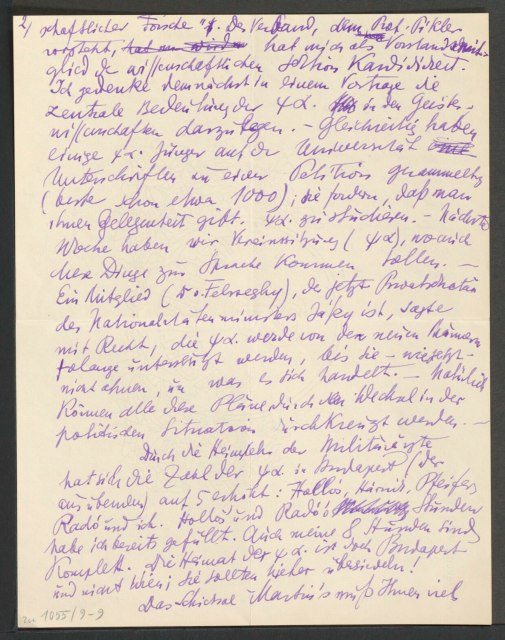 2) schaftlicher Forscher". Der Verband, dem Prof. Pikler
vorsteht, hat mich als Vorstandsmit-
glied der wissenschaftlichen Sektion kandidiert.
Ich gedenke demnächst in einem Vortrage die
zentrale Bedeutung der ψα. in den Geistes-
wissenschaften darzulegen. – Gleichzeitig haben
einige ψα. Jünger auf der Universität
Unterschriften zu einer Petition gesammelt
(bereits schon etwa 1000); sie fordern, daß man
ihnen Gelegenheit gibt. ψα. zu studieren. – Nächste
Woche haben wir Vereinssitzung (ψα), wo auch
diese Dinge zur Sprache kommen sollen. –
Ein Mitglied (v. Felszeghy), der jetzt Privatsekretär
des Nationalitätenministers Jászy ist, sagte
mit Recht, die ψα. werde von den neuen Männern
solange unterstützt werden, bis sie – wie jetzt –
nicht ahnen, um was es sich handelt. – Natürlich
können alle diese Pläne durch den Wechsel in der
politischen Situation durchkreuzt werden. –
Durch die Heimkehr der Militärärzte
hat sich die Zahl der ψα in Budapest (der
ausübenden) auf 5 erhöht: Hollós, Hárnik, Pfeifer,
Radó und ich. Hollós' und Radó's Stunden
habe ich bereits gefüllt. Auch meine 8 Stunden sind
komplett. Die Heimat der ψα. ist doch Budapest
und nicht Wien; Sie sollten hieher übersiedeln!
Das Schicksal Martin's muß Ihnen viel
zu 1055/9-9